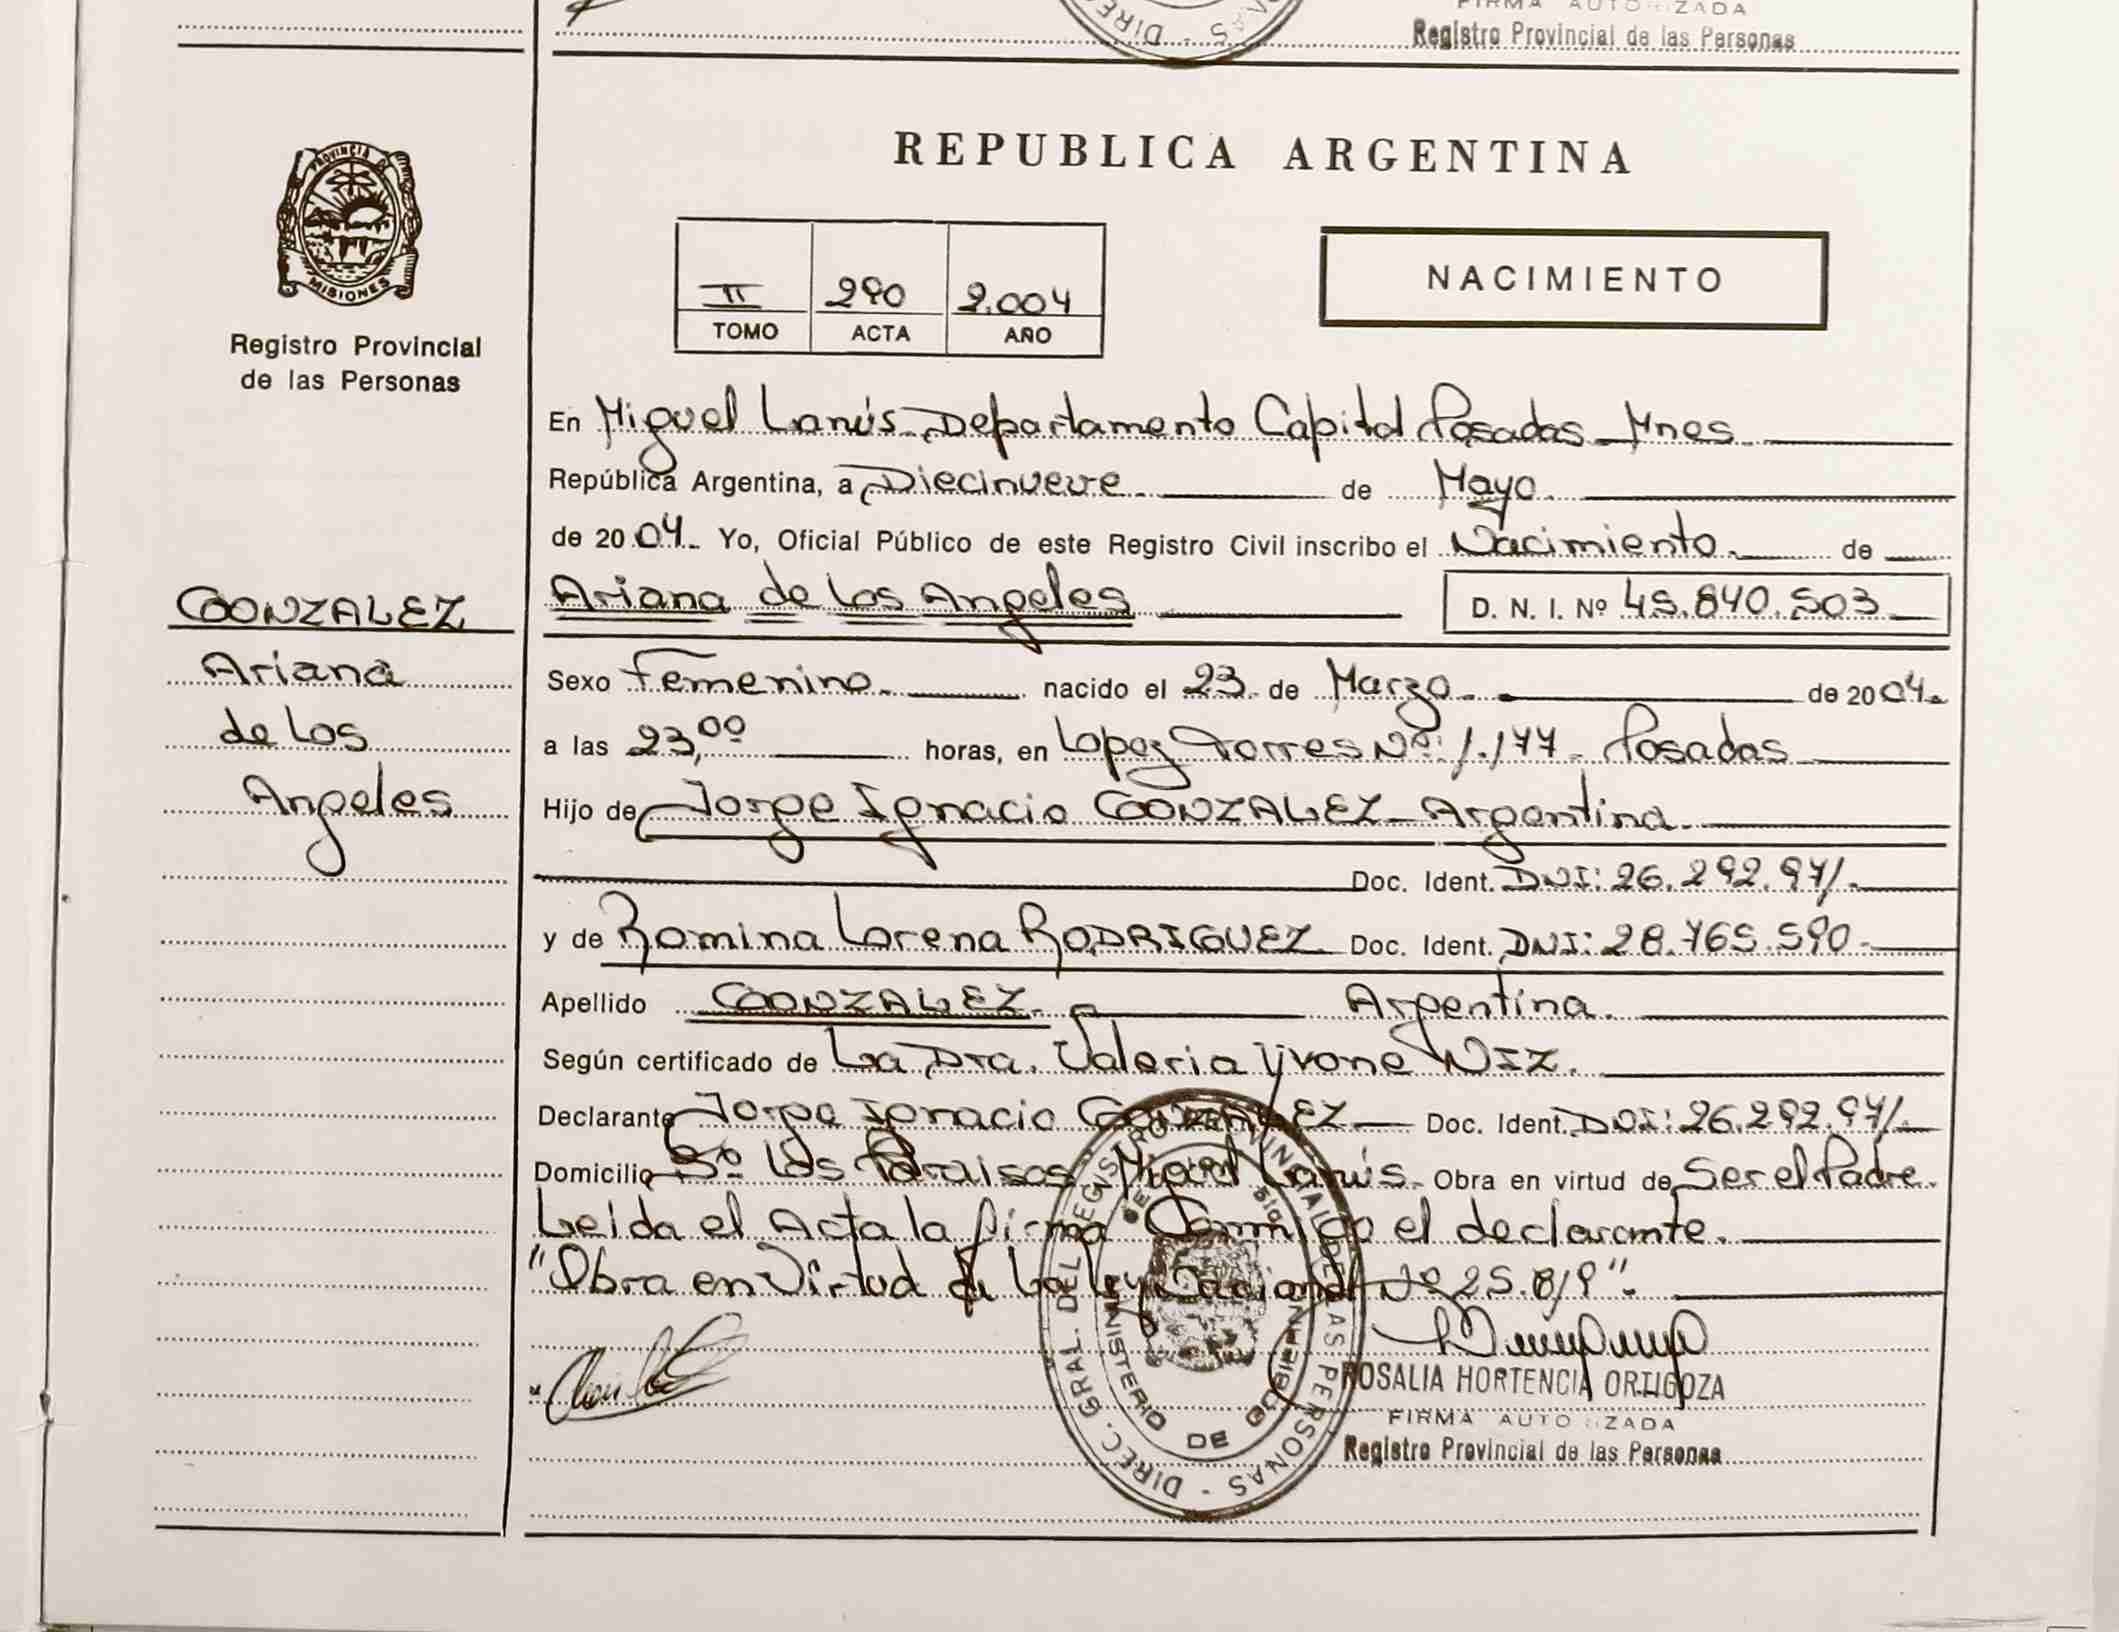 FIRMA AUTORIZADA
Registro Provincial de las Personas
PROVINCIA DE
MISIONES
Registro Provincial
de las Personas
REPUBLICA ARGENTINA
II 290 2.004
TOMO ACTA AÑO
NACIMIENTO
En Miguel Lanús Departamento Capital Posadas Mnes
República Argentina, a Diecinueve de Mayo
de 2004. Yo, Oficial Público de este Registro Civil inscribo el Nacimiento de
Ariana de los Angeles D. N. I. Nº 45.840.503
GONZALEZ
Ariana
de los
Angeles
Sexo Femenino. nacido el 23 de Marzo de 2004.
a las 23,00 horas, en Lopez Torres Nº: 1.177 Posadas
Hijo de Jorge Ignacio GONZALEZ - Argentina.
Doc. Ident. DNI: 26.292.971.
y de Romina Lorena RODRIGUEZ Doc. Ident. DNI: 28.765.590.
Apellido GONZALEZ. Argentina.
Según certificado de La Dra. Valeria Yvone NIZ.
Declarante Jorge Ignacio GONZALEZ Doc. Ident. DNI: 26.292.971.
Domicilio Bº Los Paraisos Miguel Lanús. Obra en virtud de Ser el Padre.
Leida el Acta la firma Conmigo el declarante.
"Obra en Virtud de La Ley Nacional Nº 25.819".
DIREC. GRAL. DEL REGISTRO PROVINCIAL DE LAS PERSONAS
MINISTERIO DE GOBIERNO
ROSALIA HORTENCIA ORTIGOZA
FIRMA AUTORIZADA
Registro Provincial de las Personas